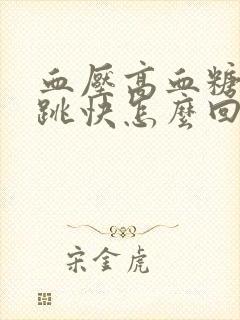 血壓高血糖
跳快怎麼回
宋金虎